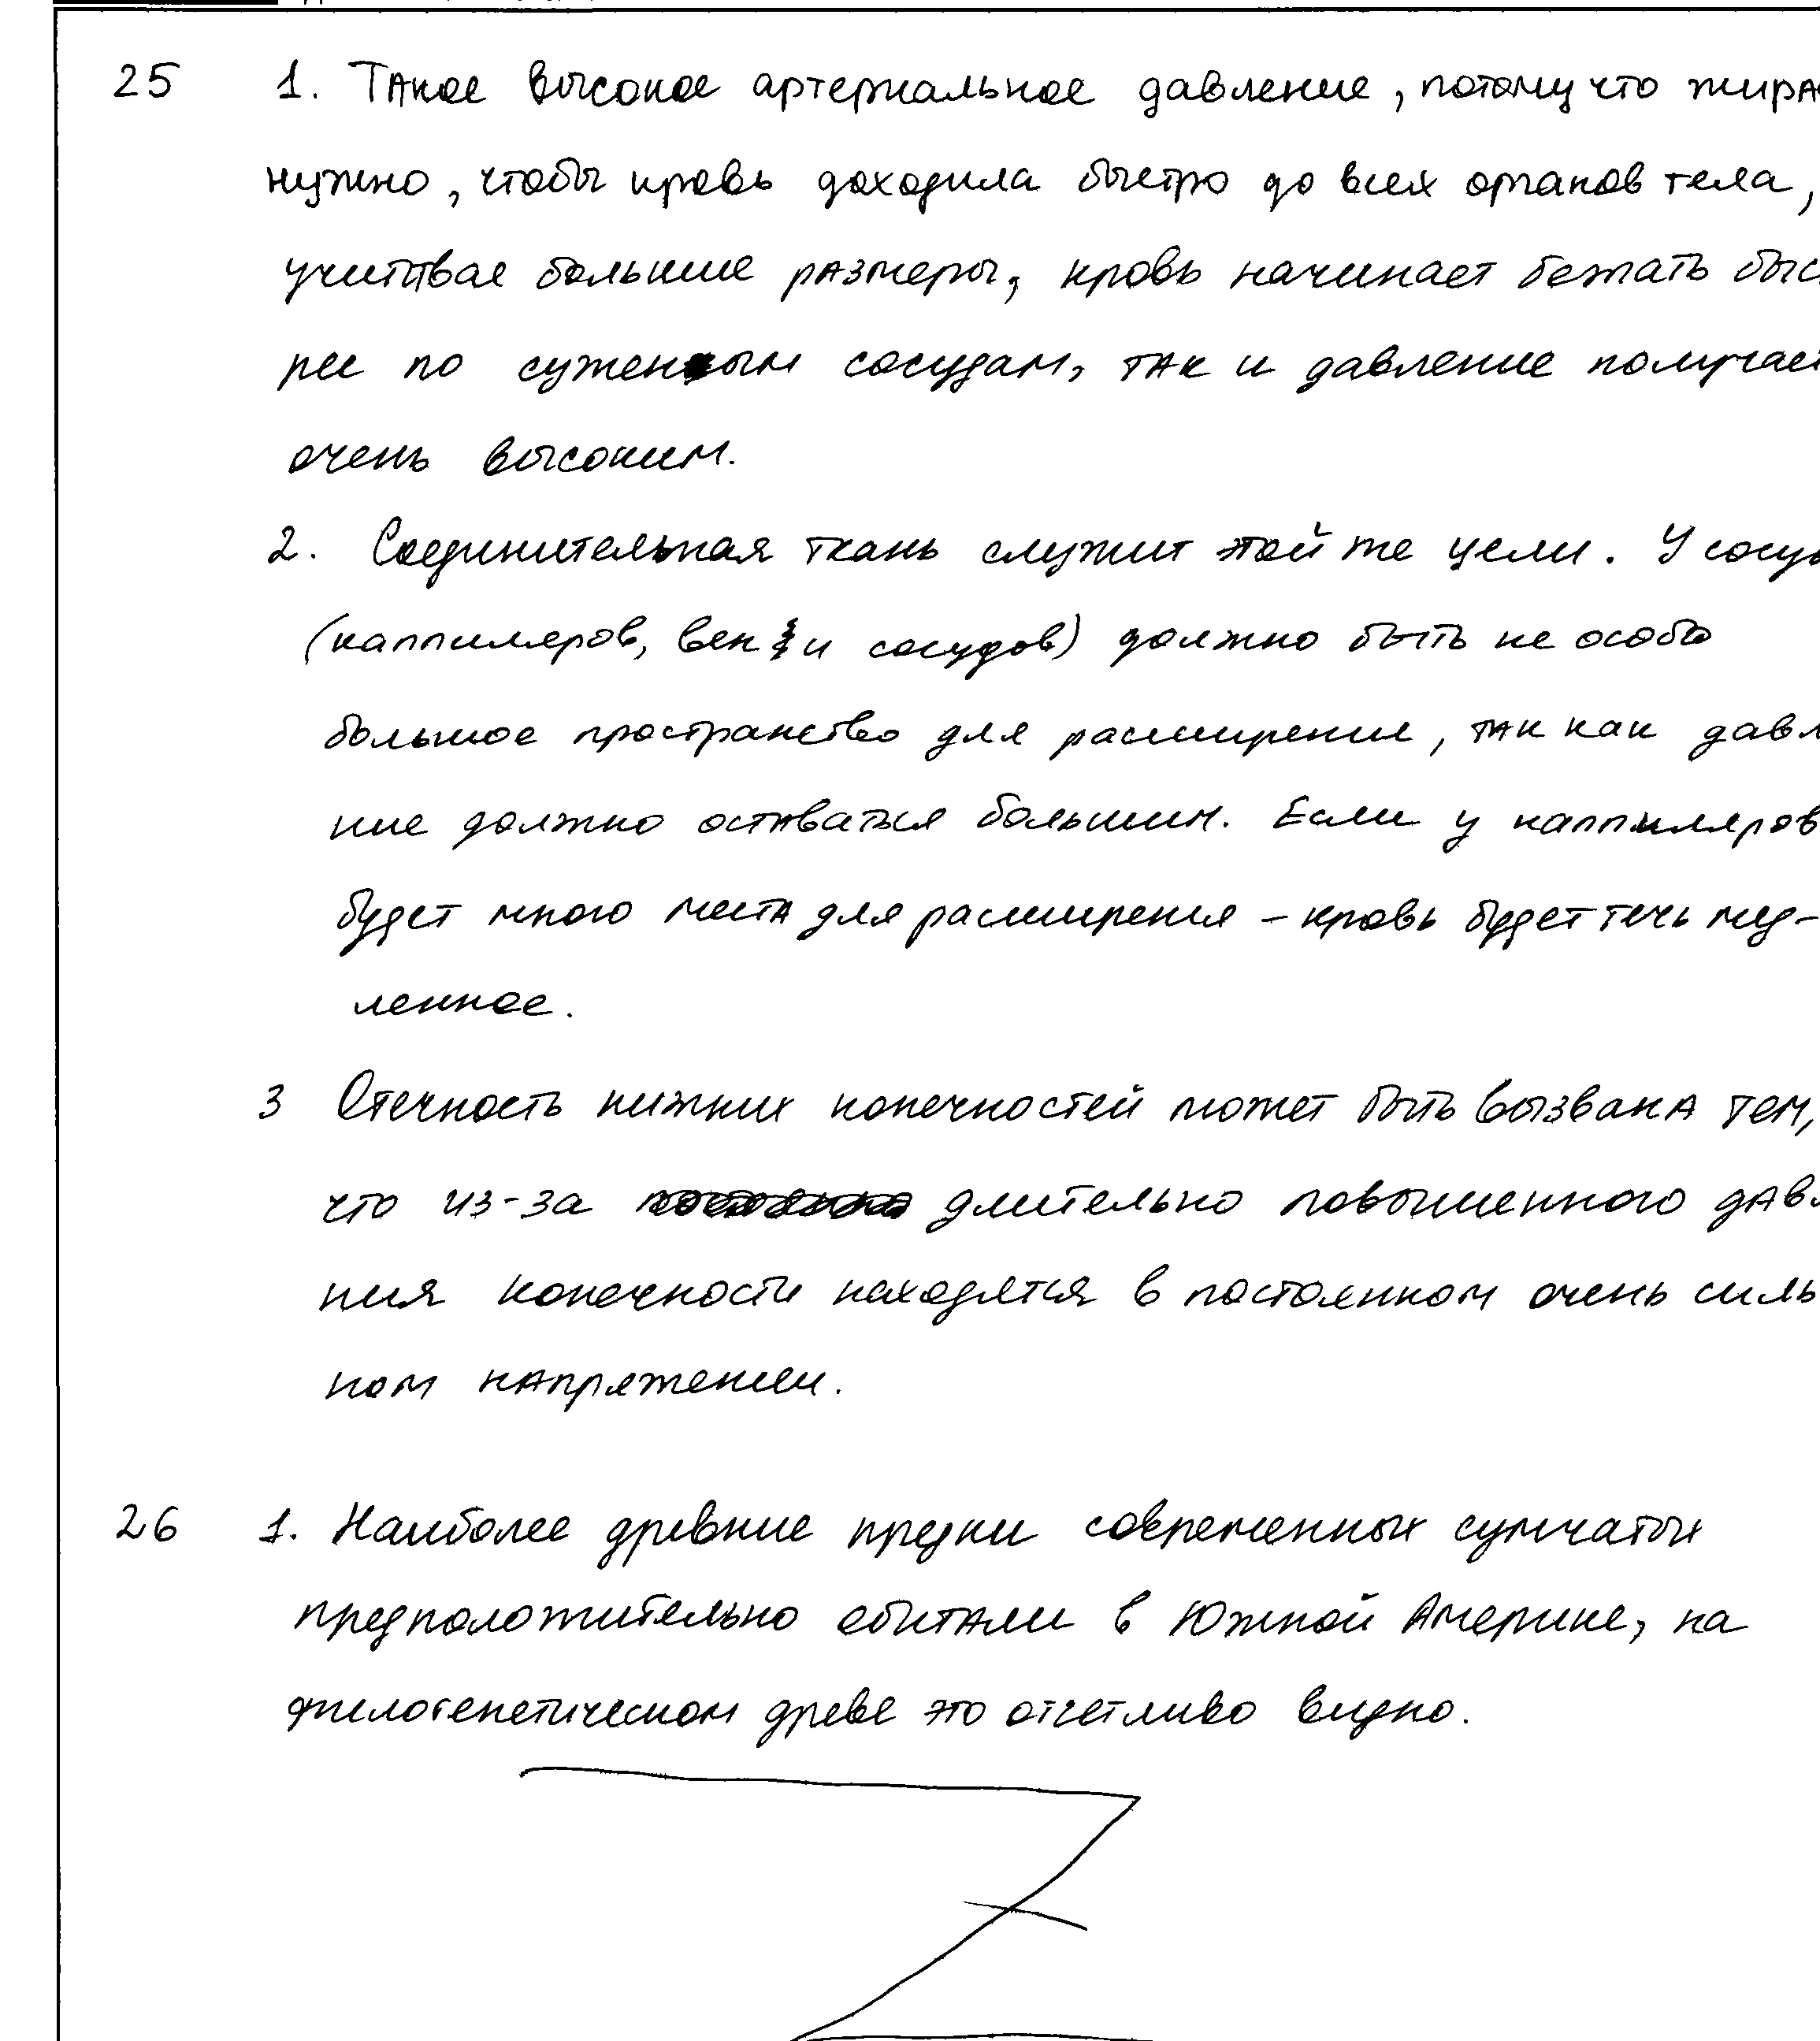 25 1. Такое высокое артериальное давление, потому что жира
нужно, чтобы кровь доходила быстро до всех органов тела,
учитывае большие размеры, кровь начинает бежать быс
рее по суженным сосудам, так и давление получает
очень высоким.
2. Соединительная ткань служит этой же цели. У сосу
(каппиляров, вен и сосудов) должно быть не особо
большое пространство для расширения, так как давл
ние должно оставаться большим. Если у каппиляров
будет много места для расширения – кровь будет течь мед-
ленное.
3 Отечность нижних конечностей может быть вызвана тем,
что из-за длительно повышенного давл
ния конечности находятся в постоянном очень силь
ном напряжении.
26 1. Наиболее древние предки современных сумчатых
предположительно обитали в Южной Америке, на
филогенетическом древе это отчетливо видно.